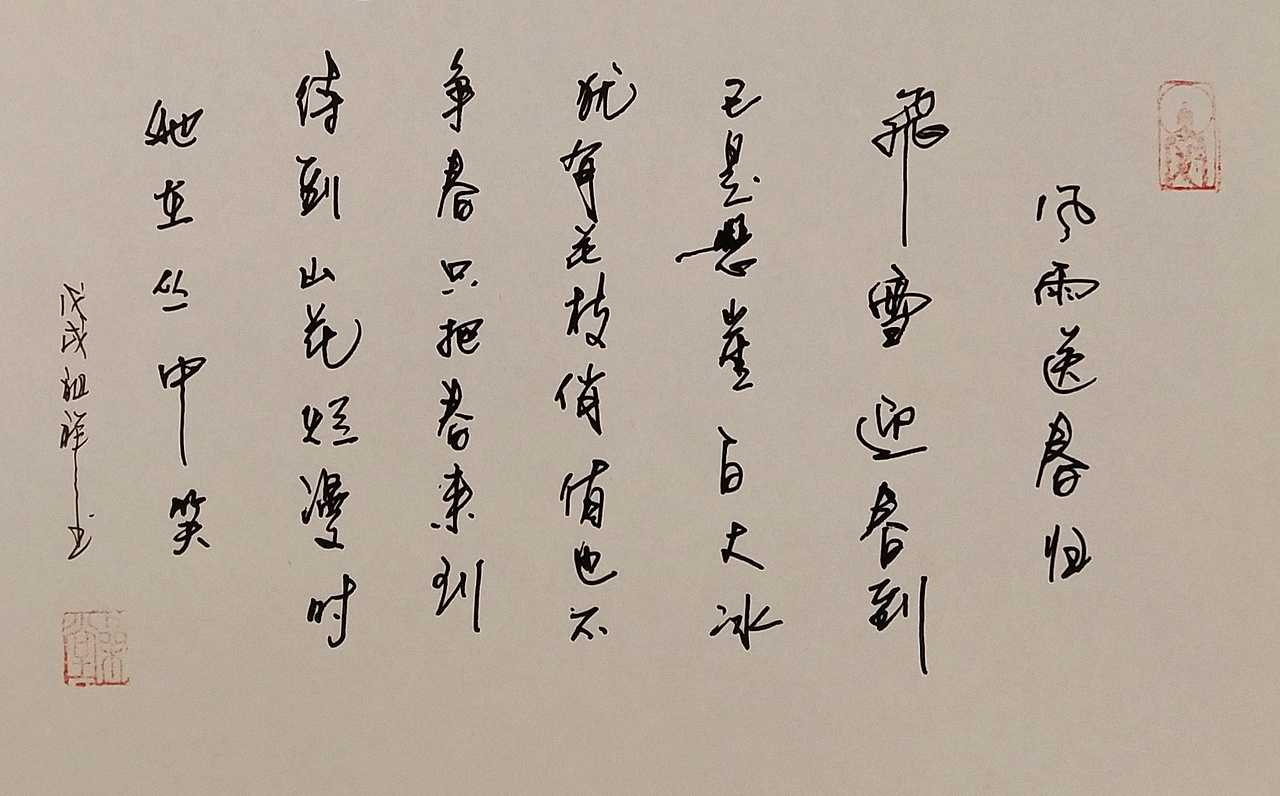 风雨送春归
飛雪迎春到
已是悬崖百大冰
犹有花枝俏俏也不
争春只把春来到
待到山花烂漫时
她在丛中笑
戊戌祖祥书